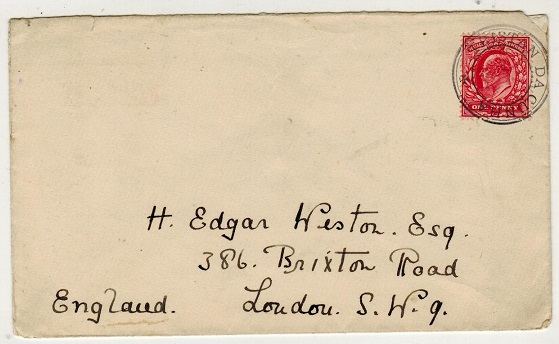 ONE PENNY
H. Edgar Weston. Esq.
386. Brixton Road
England. London. S. W. 9.